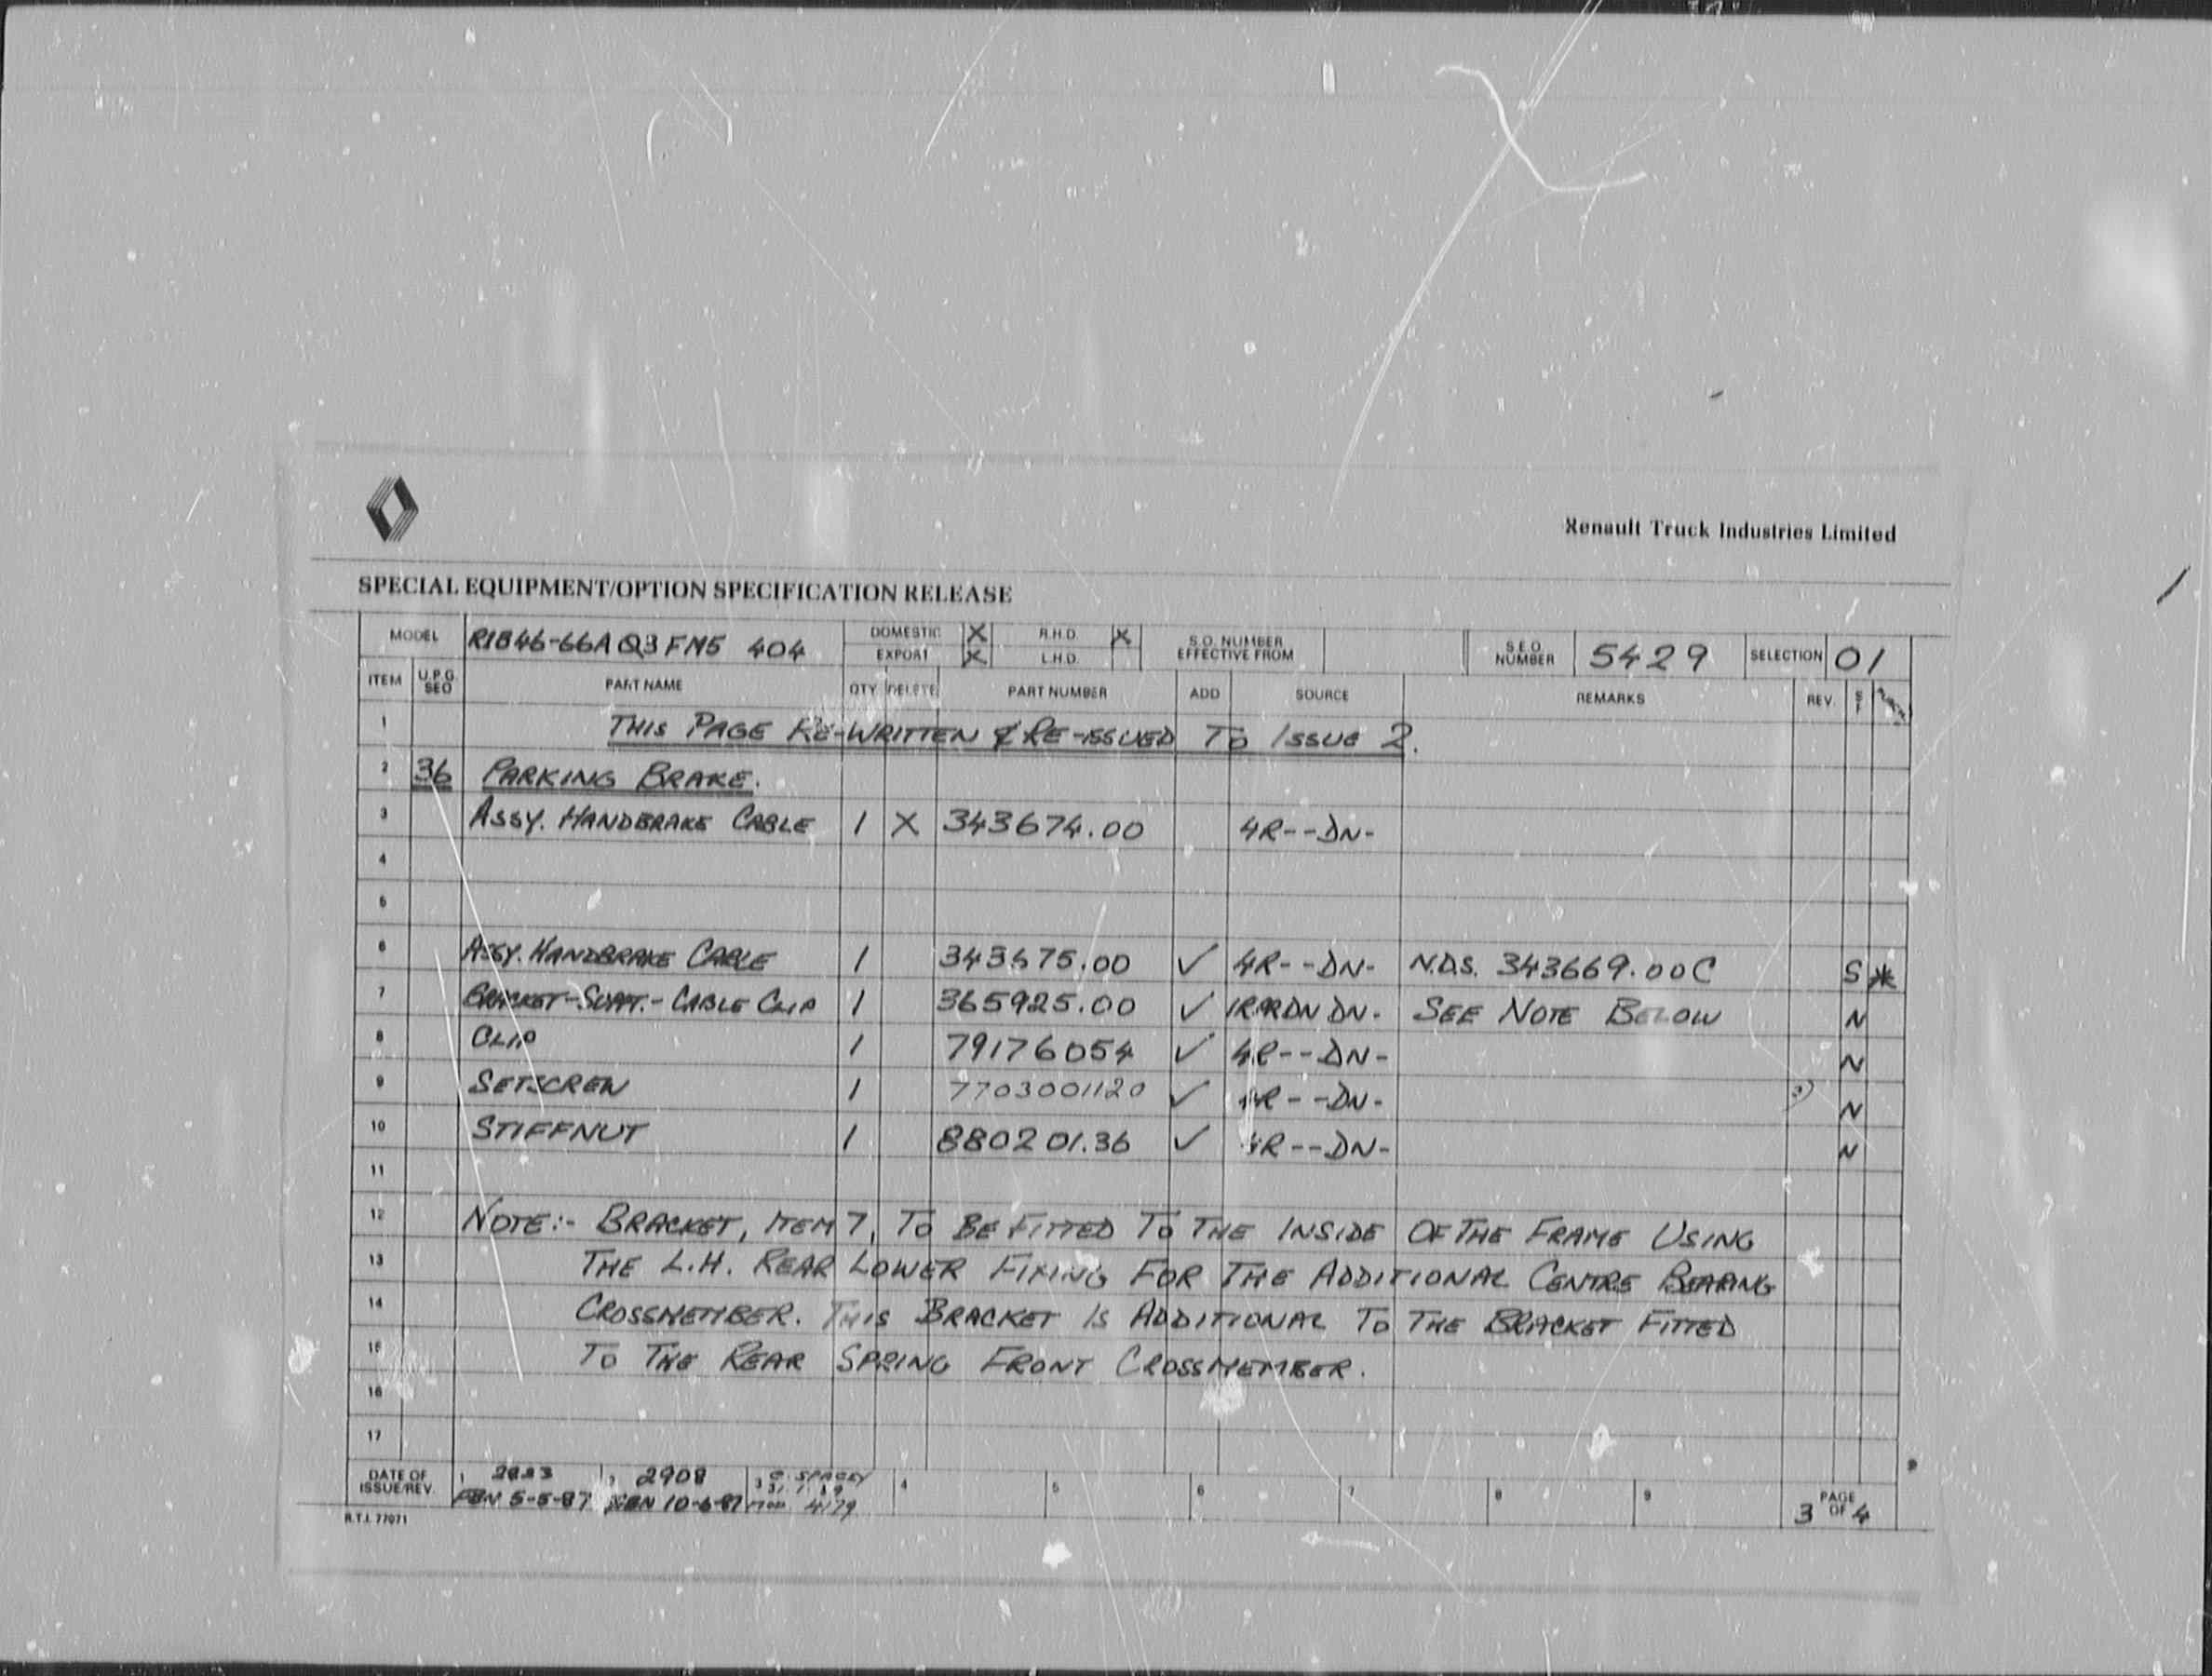 Renault Truck Industries Limited
SPECIAL EQUIPMENT/OPTION SPECIFICATION RELEASE
MODEL R1846-66A Q3 FM5 404 DOMESTIC X R.H.D. X S.O. NUMBER EFFECTIVE FROM S.E.O. NUMBER 5429 SELECTION 01
EXPORT X L.H.D.
ITEM U.P.G. SEQ PART NAME QTY DELETE PART NUMBER ADD SOURCE REMARKS REV.
1 THIS PAGE RE-WRITTEN & RE-ISSUED TO ISSUE 2.
2 36 PARKING BRAKE.
3 ASSY. HANDBRAKE CABLE 1 X 343674.00 4R--DN-
4
5
6 ASSY. HANDBRAKE CABLE 1 343675.00 ✓ 4R--DN- N.D.S. 343669.00C S *
7 BRACKET-SUPPT.-CABLE CLIP 1 365925.00 ✓ 1RRDNDN- SEE NOTE BELOW N
8 CLIP 1 79176054 ✓ 4R--DN- N
9 SETSCREW 1 7703001120 ✓ 4R--DN- N
10 STIFFNUT 1 880201.36 ✓ 4R--DN- N
11
12 NOTE:- BRACKET, ITEM 7, TO BE FITTED TO THE INSIDE OF THE FRAME USING
13 THE L.H. REAR LOWER FIXING FOR THE ADDITIONAL CENTRE BEARING
14 CROSSMEMBER. THIS BRACKET IS ADDITIONAL TO THE BRACKET FITTED
15 TO THE REAR SPRING FRONT CROSSMEMBER.
16
17
DATE OF ISSUE/REV. 1 2 2908 3 C. SPACEY 4 5 6 7 8 9 PAGE 3 OF 4
5-5-87 10-6-87 4179
R.T.I. 77071